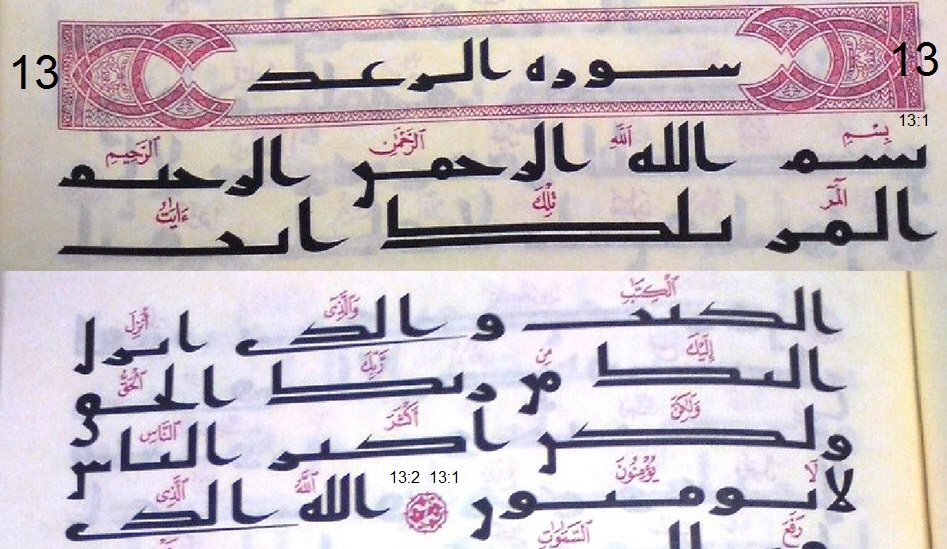 13 سوره الرعد 13
13:1
بِسْمِ اللَّهِ الرَّحْمَٰنِ الرَّحِيمِ
بسم الله الرحمن الرحيم
الٓمٓر تِلْكَ ءَايَٰتُ
المر تلك ايت
الْكِتَٰبِ وَالَّذِىٓ أُنزِلَ
الكتب و الذى انزل
إِلَيْكَ مِن رَّبِّكَ الْحَقُّ
اليك من ربك الحق
وَلَٰكِنَّ أَكْثَرَ النَّاسِ
ولكن اكثر الناس
لَا يُؤْمِنُونَ 13:1 13:2 اللَّهُ الَّذِى
لا يومنون الله الذى
رَفَعَ السَّمَٰوَٰتِ